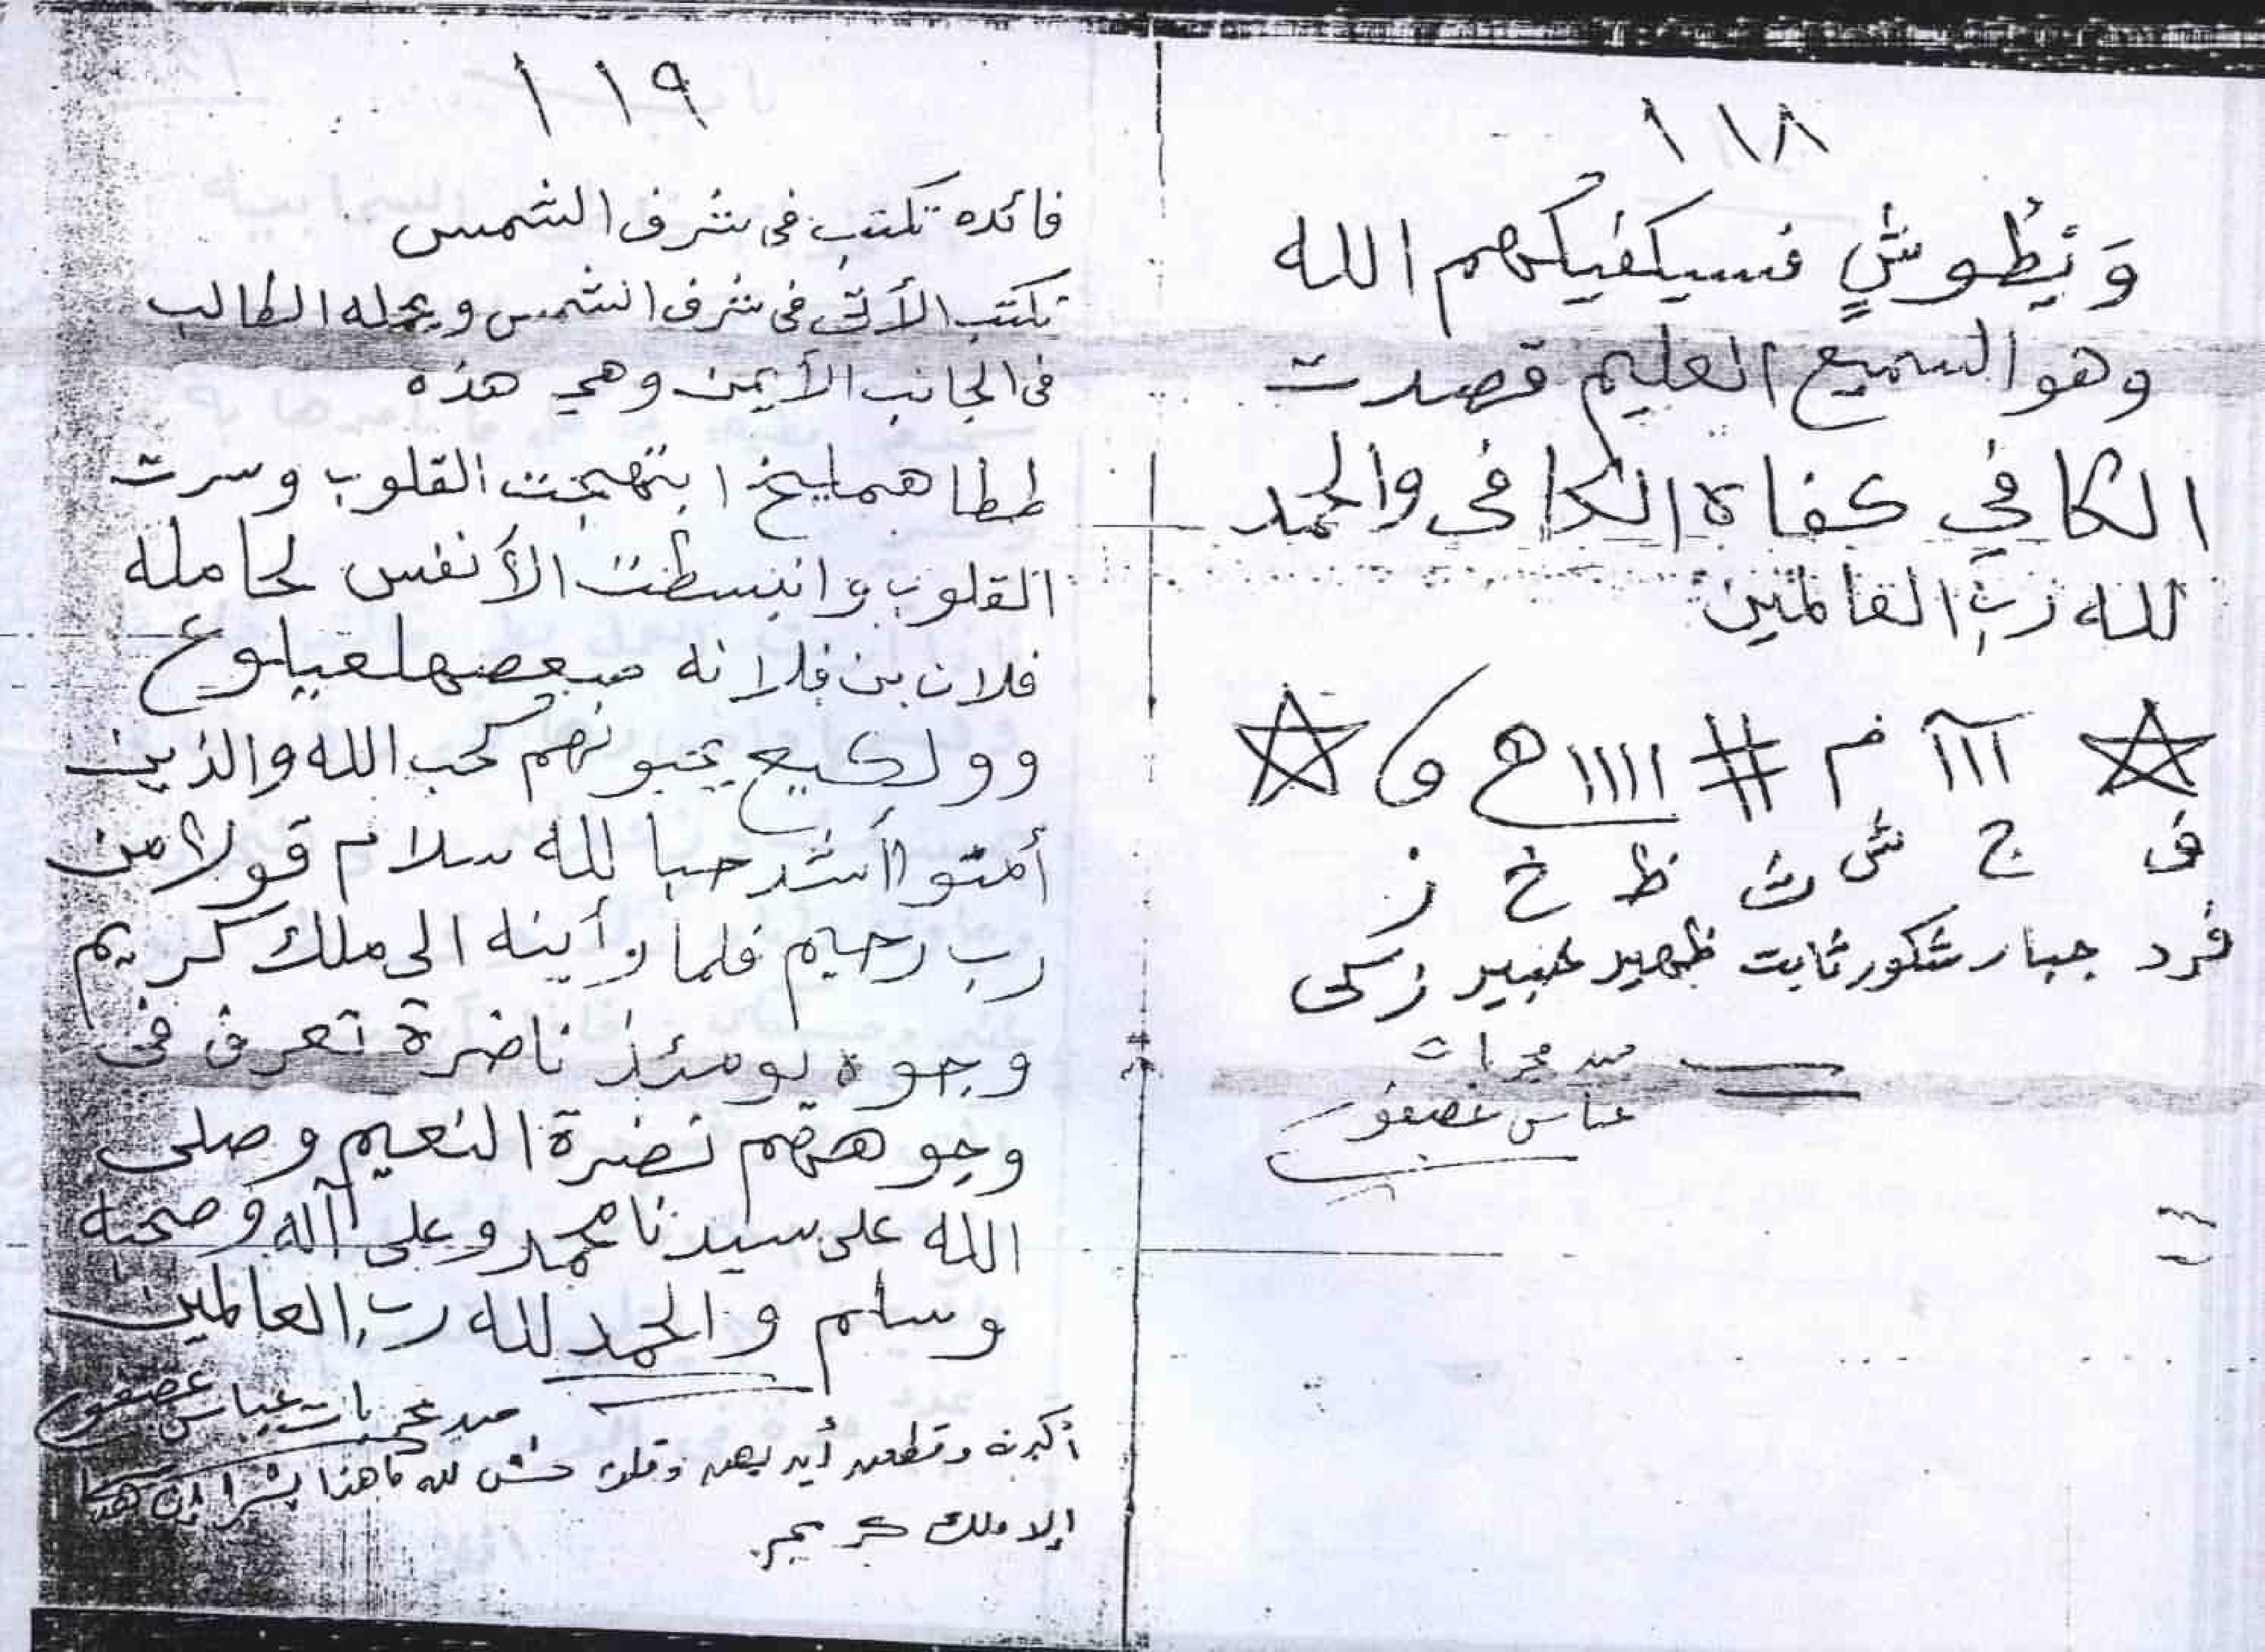 ١١٨
وَيْطُوشٍ فسيكفيكهم الله
وهو السميع العليم قصدت
الكافي كفاه الكافى والحمد
لله رب العالمين
ااا م # اااا ھ و
ف ج ش ث ظ خ ز
فرد جبار شكور ثابت ظهير خبير زكى
من مجربات
عباس عصفور
١١٩
فائده تكتب فى شرف الشمس
تكتب الأتى فى شرف الشمس ويحمله الطالب
فى الجانب الأيمن وهي هذه
ططاهمليخ ابتهجت القلوب وسرت
القلوب وانبسطت الأنفس لحامله
فلان بن فلانه
يحبونهم كحب الله والذين
أمنوا أشد حبا لله سلام قولا من
رب رحيم فلما رأينه الى ملك كريم
وجوه يومئذ ناضرة تعرف فى
وجوههم نضرة النعيم وصلى
الله على سيدنا محمد وعلى آله وصحبه
وسلم والحمد لله رب العالمين
من مجربات عباس عصفور
أكبرنه وقطعن أيديهن وقلن حش لله ما هذا بشرا إن هذا
إلا ملك كريم